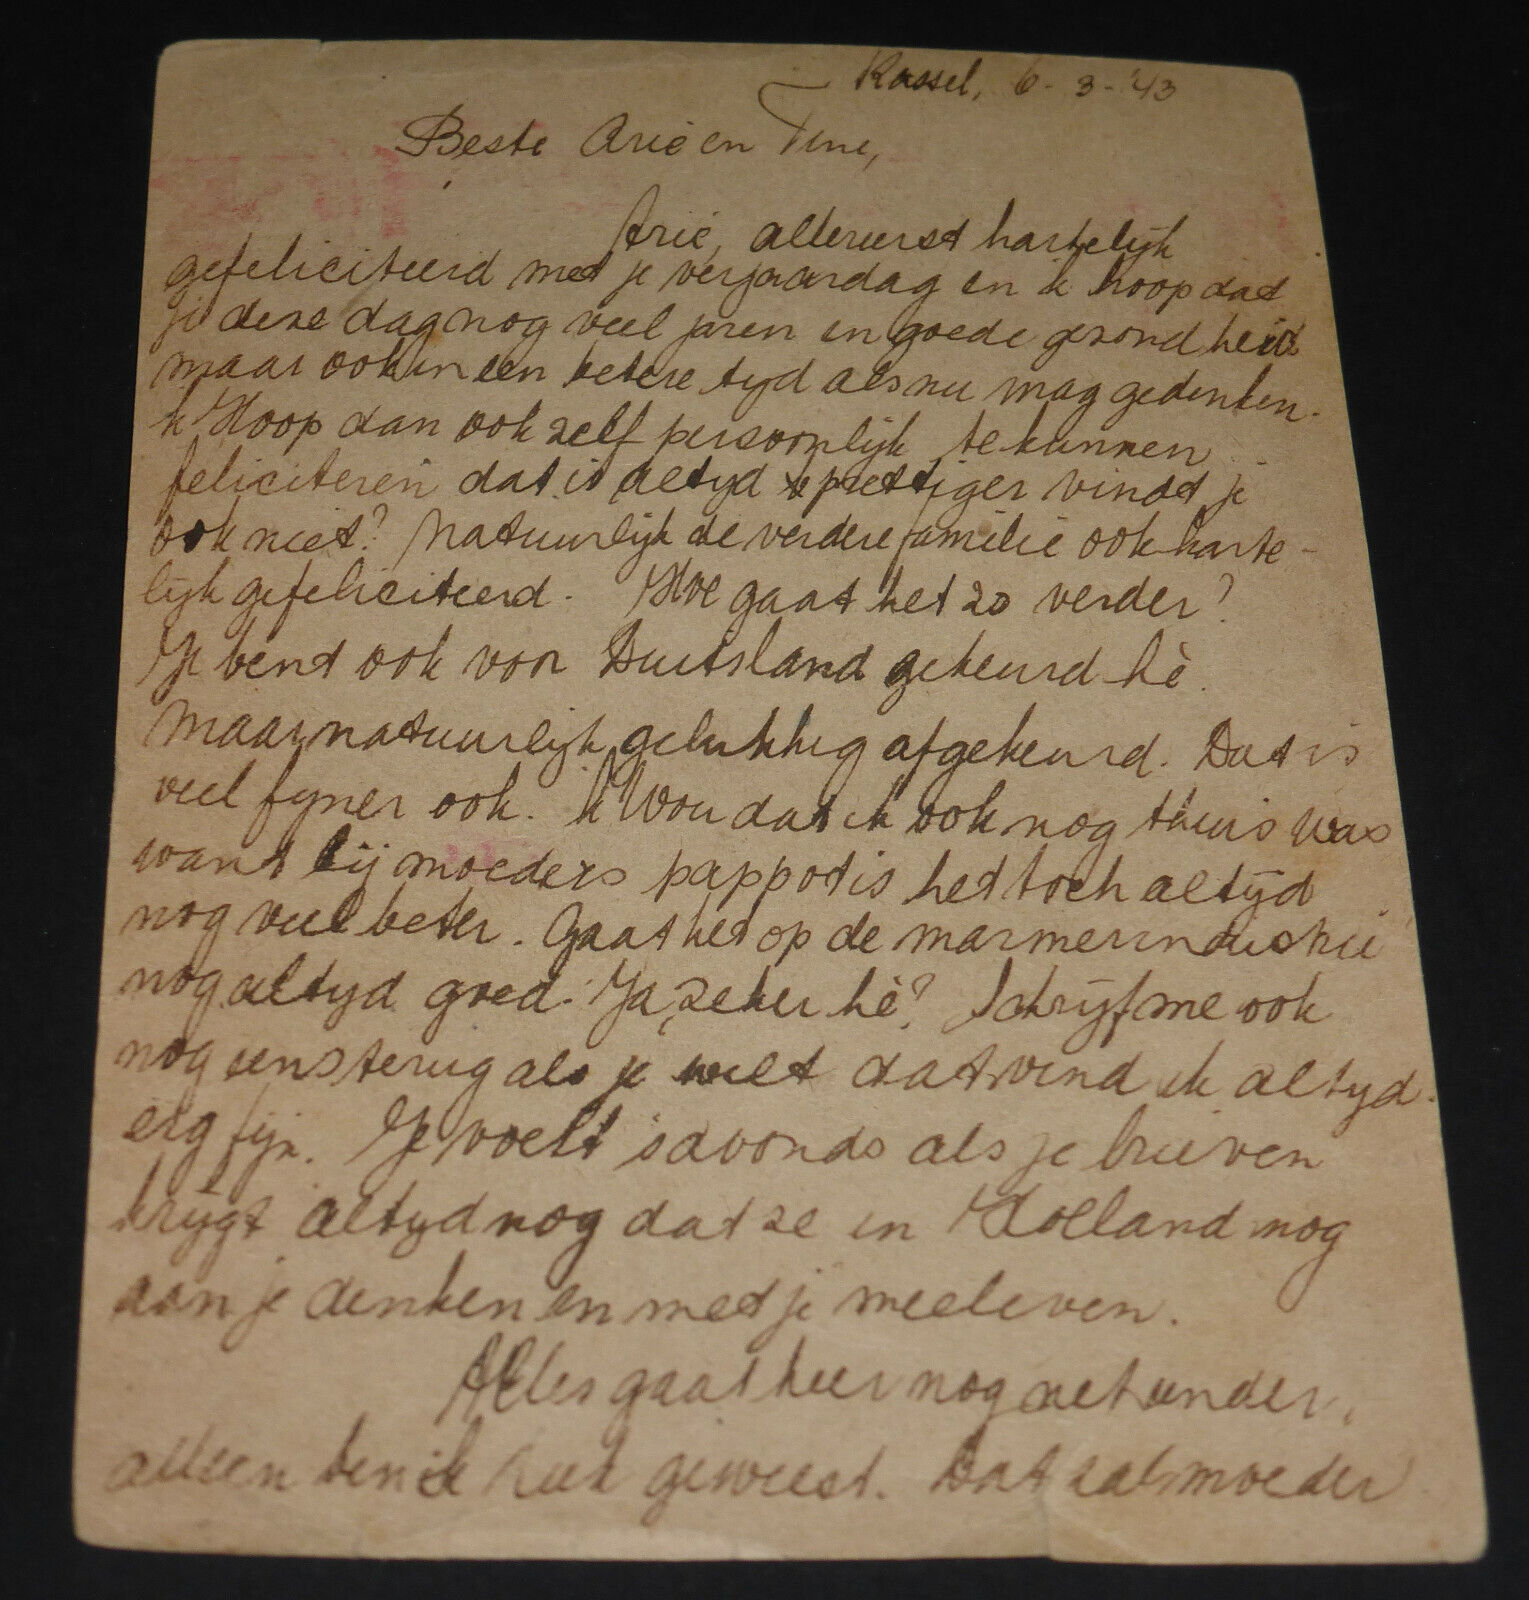 Kassel, 6-3-'43
Beste Arie en Tine,
Arie, allereerst hartelijk
gefeliciteerd met je verjaardag en ik hoop dat
je deze dag nog veel jaren in goede gezondheid
maar ook in een betere tyd als nu mag gedenken.
ik Hoop dan ook zelf persoonlijk te kunnen
feliciteren dat is altyd prettiger vindt je
ook niet? Natuurlijk de verdere familie ook harte-
lijk gefeliciteerd. Hoe gaat het zo verder?
Je bent ook voor Duitsland gekeurd hè.
Maar natuurlijk gelukkig afgekeurd. Dat is
veel fyner ook. ik Wou dat ik ook nog thuis was
want bij moeders pappot is het toch altijd
nog veel beter. Gaat het op de marmerindustrie
nog altyd goed. Ja, zeker hè? Schrijf me ook
nog eens terug als je wilt dat vind ik altyd
erg fijn. Je voelt s'avonds als je brieven
krijgt altyd nog dat ze in Holland nog
aan je denken en met je meeleven.
Alles gaat hier nog net eender,
alleen ben ik ziek geweest. Dat zal moeder